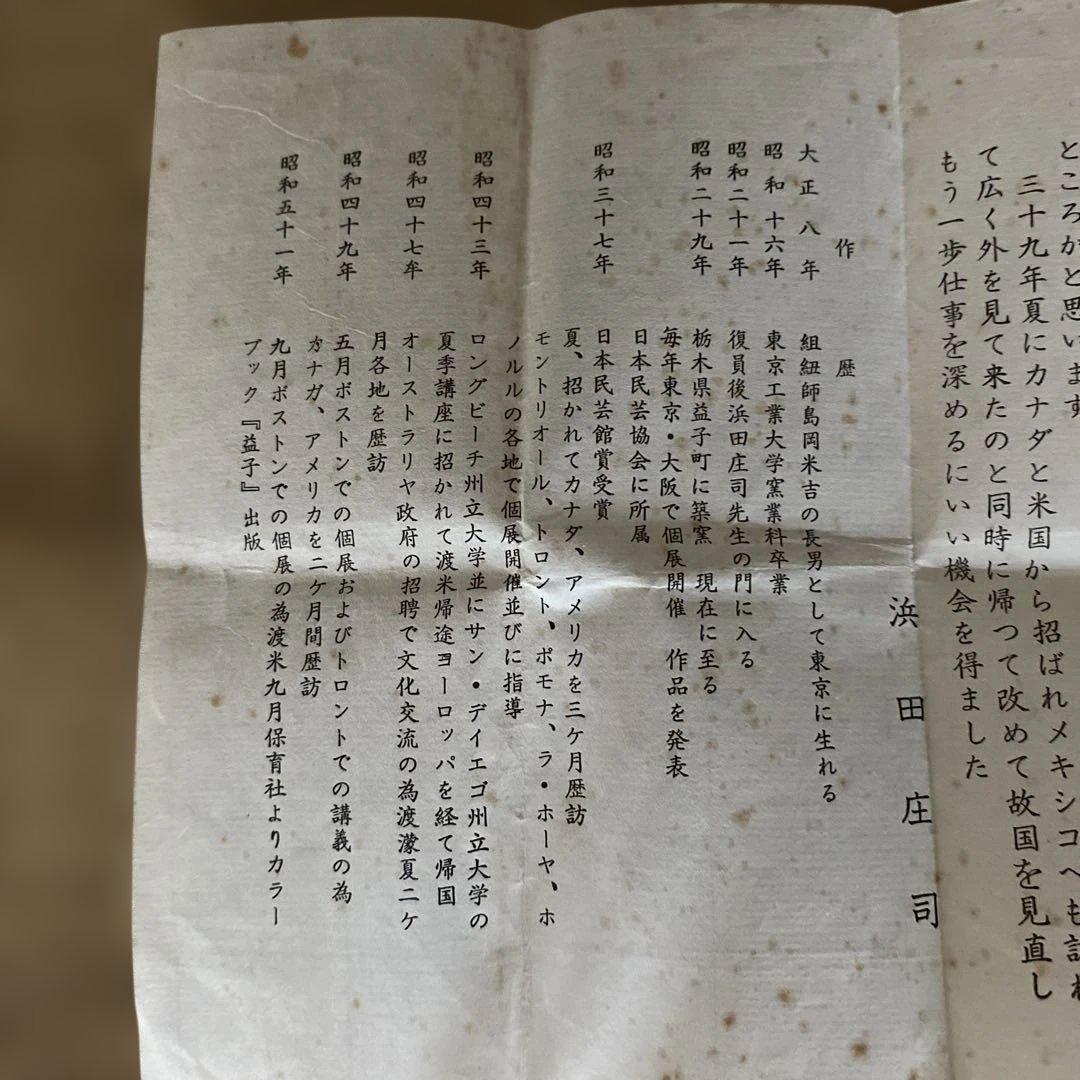 ところがと思います
三十九年夏にカナダと米国から招ばれメキシコへも訪ね
て広く外を見て来たのと同時に帰つて改めて故国を見直し
もう一歩仕事を深めるにいい機会を得ました
浜田庄司
作歴
大正八年 組紐師島岡米吉の長男として東京に生れる
昭和十六年 東京工業大学窯業科卒業
昭和二十一年 復員後浜田庄司先生の門に入る
昭和二十九年 栃木県益子町に築窯 現在に至る
毎年東京・大阪で個展開催 作品を発表
日本民芸協会に所属
昭和三十七年 日本民芸館賞受賞
夏、招かれてカナダ、アメリカを三ケ月歴訪
モントリオール、トロント、ポモナ、ラ・ホーヤ、ホ
ノルルの各地で個展開催並びに指導
昭和四十三年 ロングビーチ州立大学並にサン・デイエゴ州立大学の
夏季講座に招かれて渡米帰途ヨーロッパを経て帰国
昭和四十七年 オーストラリヤ政府の招聘で文化交流の為渡濠夏二ケ
月各地を歴訪
昭和四十九年 五月ボストンでの個展およびトロントでの講義の為
カナガ、アメリカを二ケ月間歴訪
昭和五十一年 九月ボストンでの個展の為渡米九月保育社よりカラー
ブック『益子』出版